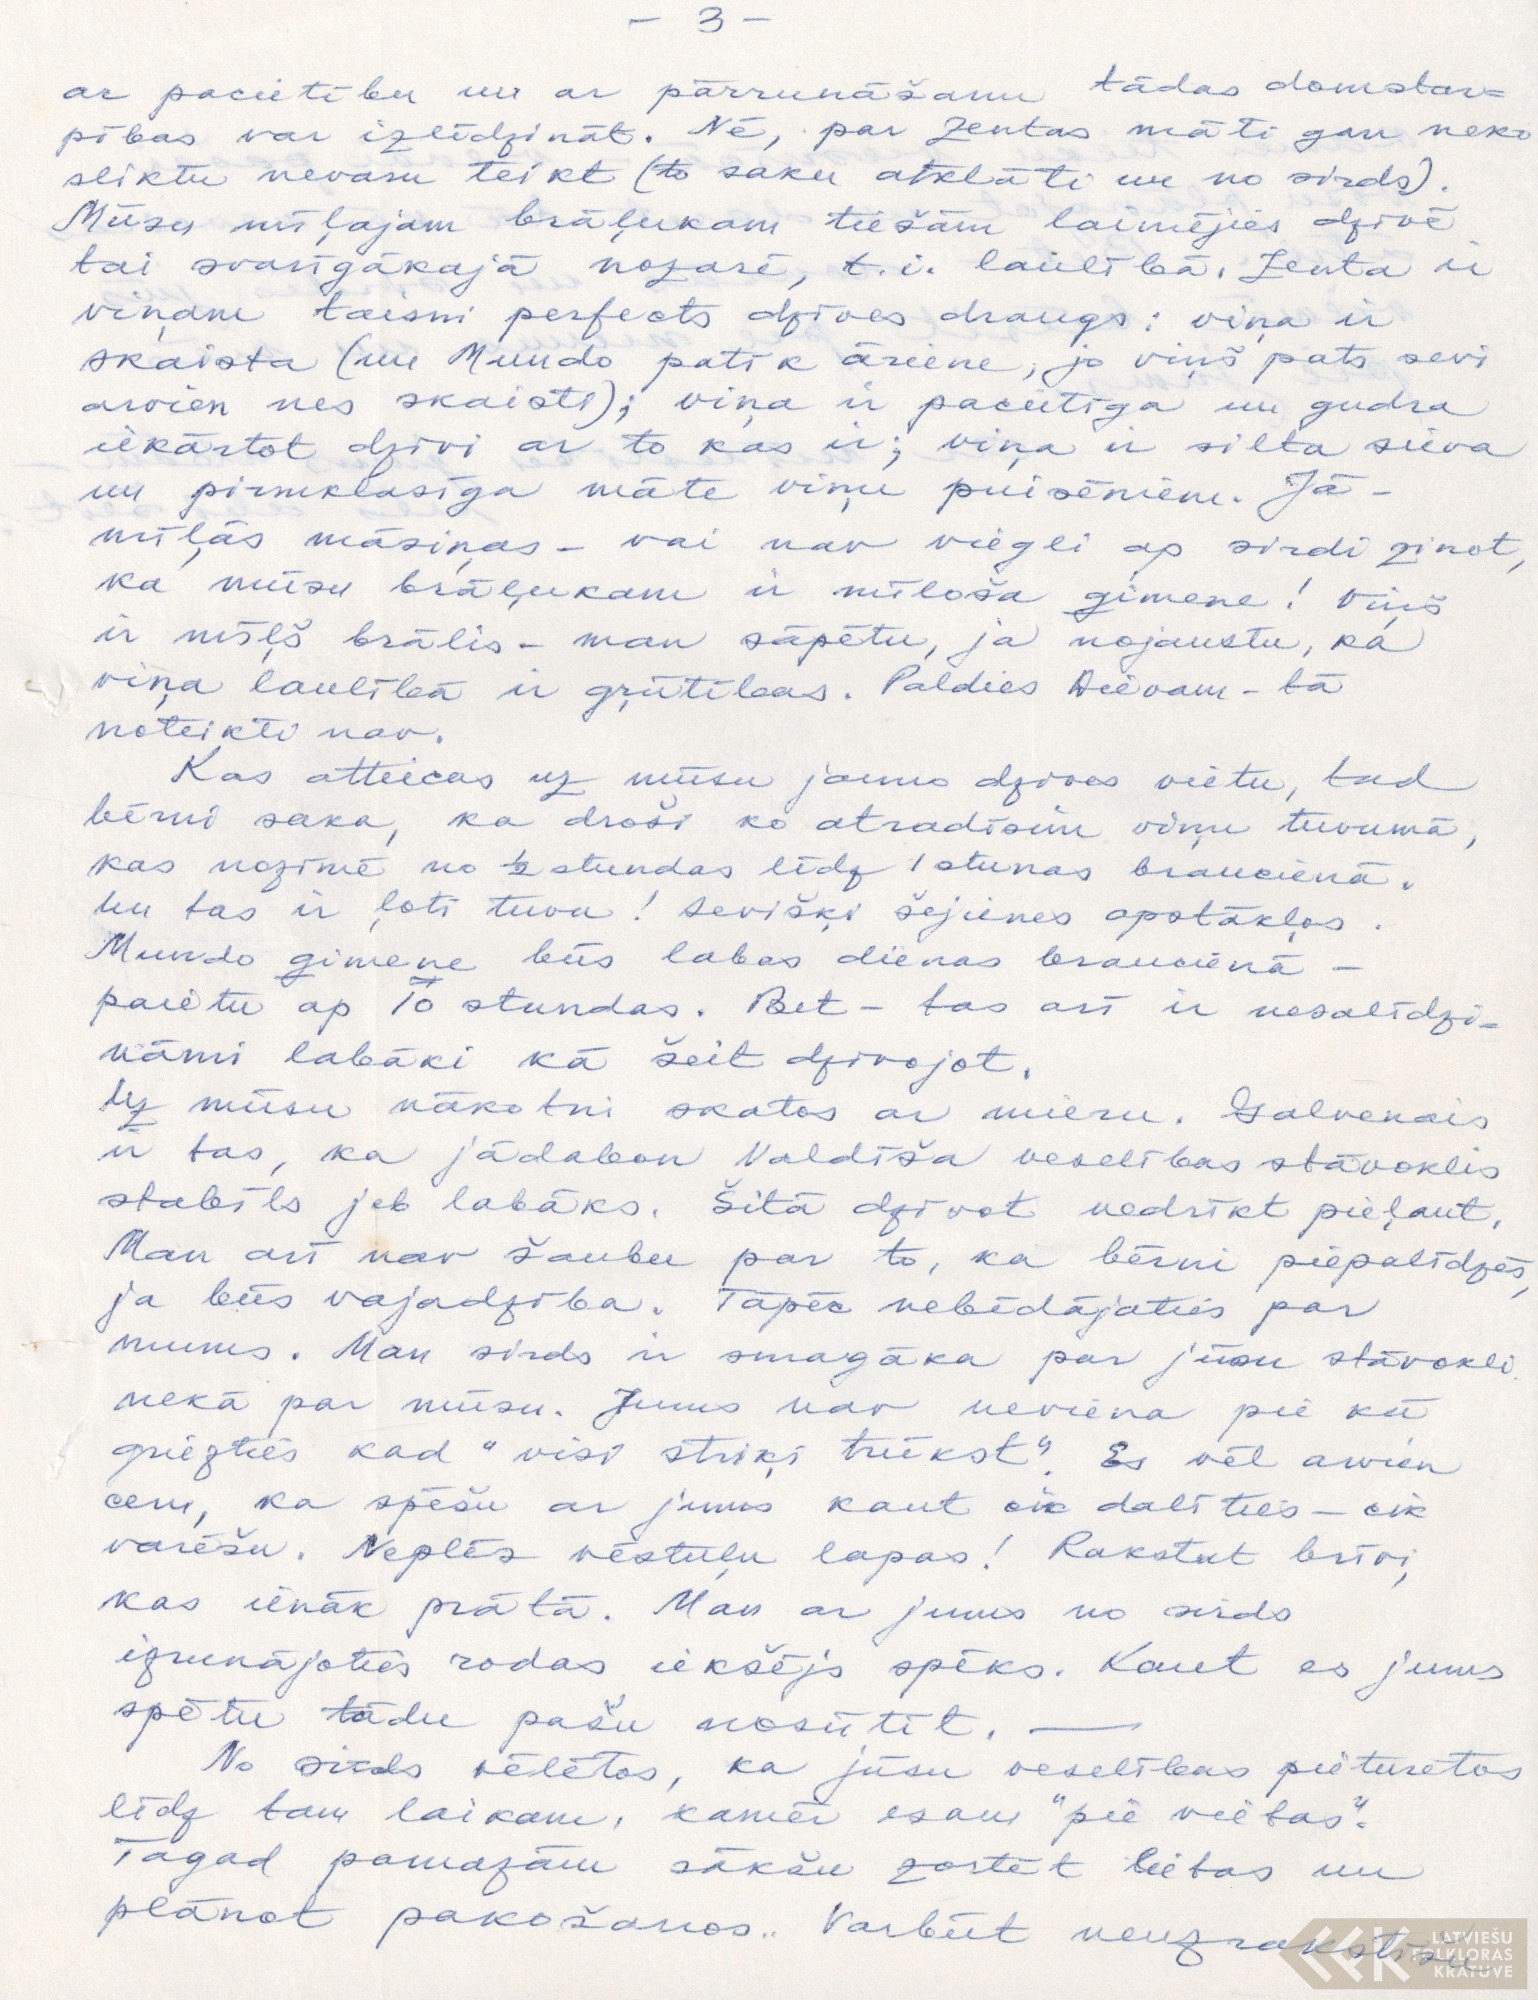 - 3 -
ar pacietību un ar pārrunāšanu tādas domstar=
pības var izlīdzināt. Nē, par Zentas māti gan neko
sliktu nevaru teikt (to saku atklāti un no sirds).
Mūsu mīļajam brāļukam tiešām laimējies dzīvē
tai svarīgākajā nozarē, t.i. laulībā. Zenta ir
viņam taisni perfects dzīves draugs: viņa ir
skaista (un Mundo patīk āriene, jo viņš pats sevi
arvien nes skaisti); viņa ir pacietīga un gudra
iekārtot dzīvi ar to kas ir; viņa ir silta sieva
un pirmklasīga māte viņu puisēniem. Jā -
mīļās māsiņas - vai nav viegli ap sirdi zinot,
ka mūsu brāļukam ir mīloša ģimene! Viņš
ir mīļš brālis - man sāpētu, ja nojaustu, ka
viņa laulībā ir grūtības. Paldies Dievam - tā
noteikti nav.
Kas attiecas uz mūsu jauno dzīves vietu, tad
bērni saka, ka droši ko atradīsim viņu tuvumā,
kas nozīmē no ½ stundas līdz 1 stunas braucienā.
Un tas ir ļoti tuvu! Sevišķi šejienes apstākļos.
Mundo ģimene būs labas dienas braucienā -
paietu ap 10 stundas. Bet - tas arī ir nesalīdzi-
nāmi labāki kā šeit dzīvojot.
Uz mūsu nākotni skatos ar mieru. Galvenais
ir tas, ka jādabon Valdīša veselības stāvoklis
stabīls jeb labāks. Šitā dzīvot nedrīkt pieļaut.
Man arī nav šaubu par to, ka bērni piepalīdzēs,
ja būs vajadzība. Tāpēc nebēdājaties par
mums. Man sirds ir smagāka par jūsu stāvokli
nekā par mūsu. Jums nav neviena pie kā
griezties kad "visi striķi trūkst". Es vēl arvien
ceru, ka spēšu ar jums kaut cik dalīties - cik
varēšu. Neplēs vēstuļu lapas! Rakstut brīvi,
kas ienāk prātā. Man ar jums no sirds
izrunājoties rodas iekšējs spēks. Kaut es jums
spētu tādu pašu nosūtīt. —
No sirds vēlētos, ka jūsu veselības pieturētos
līdz tam laikam, kamēr esam "pie vietas".
Tagad pamazām sākšu zortēt lietas un
plānot pakošanos.. Varbūt neuzrakstīšu
LATVIEŠU
FOLKLORAS
KRĀTUVE